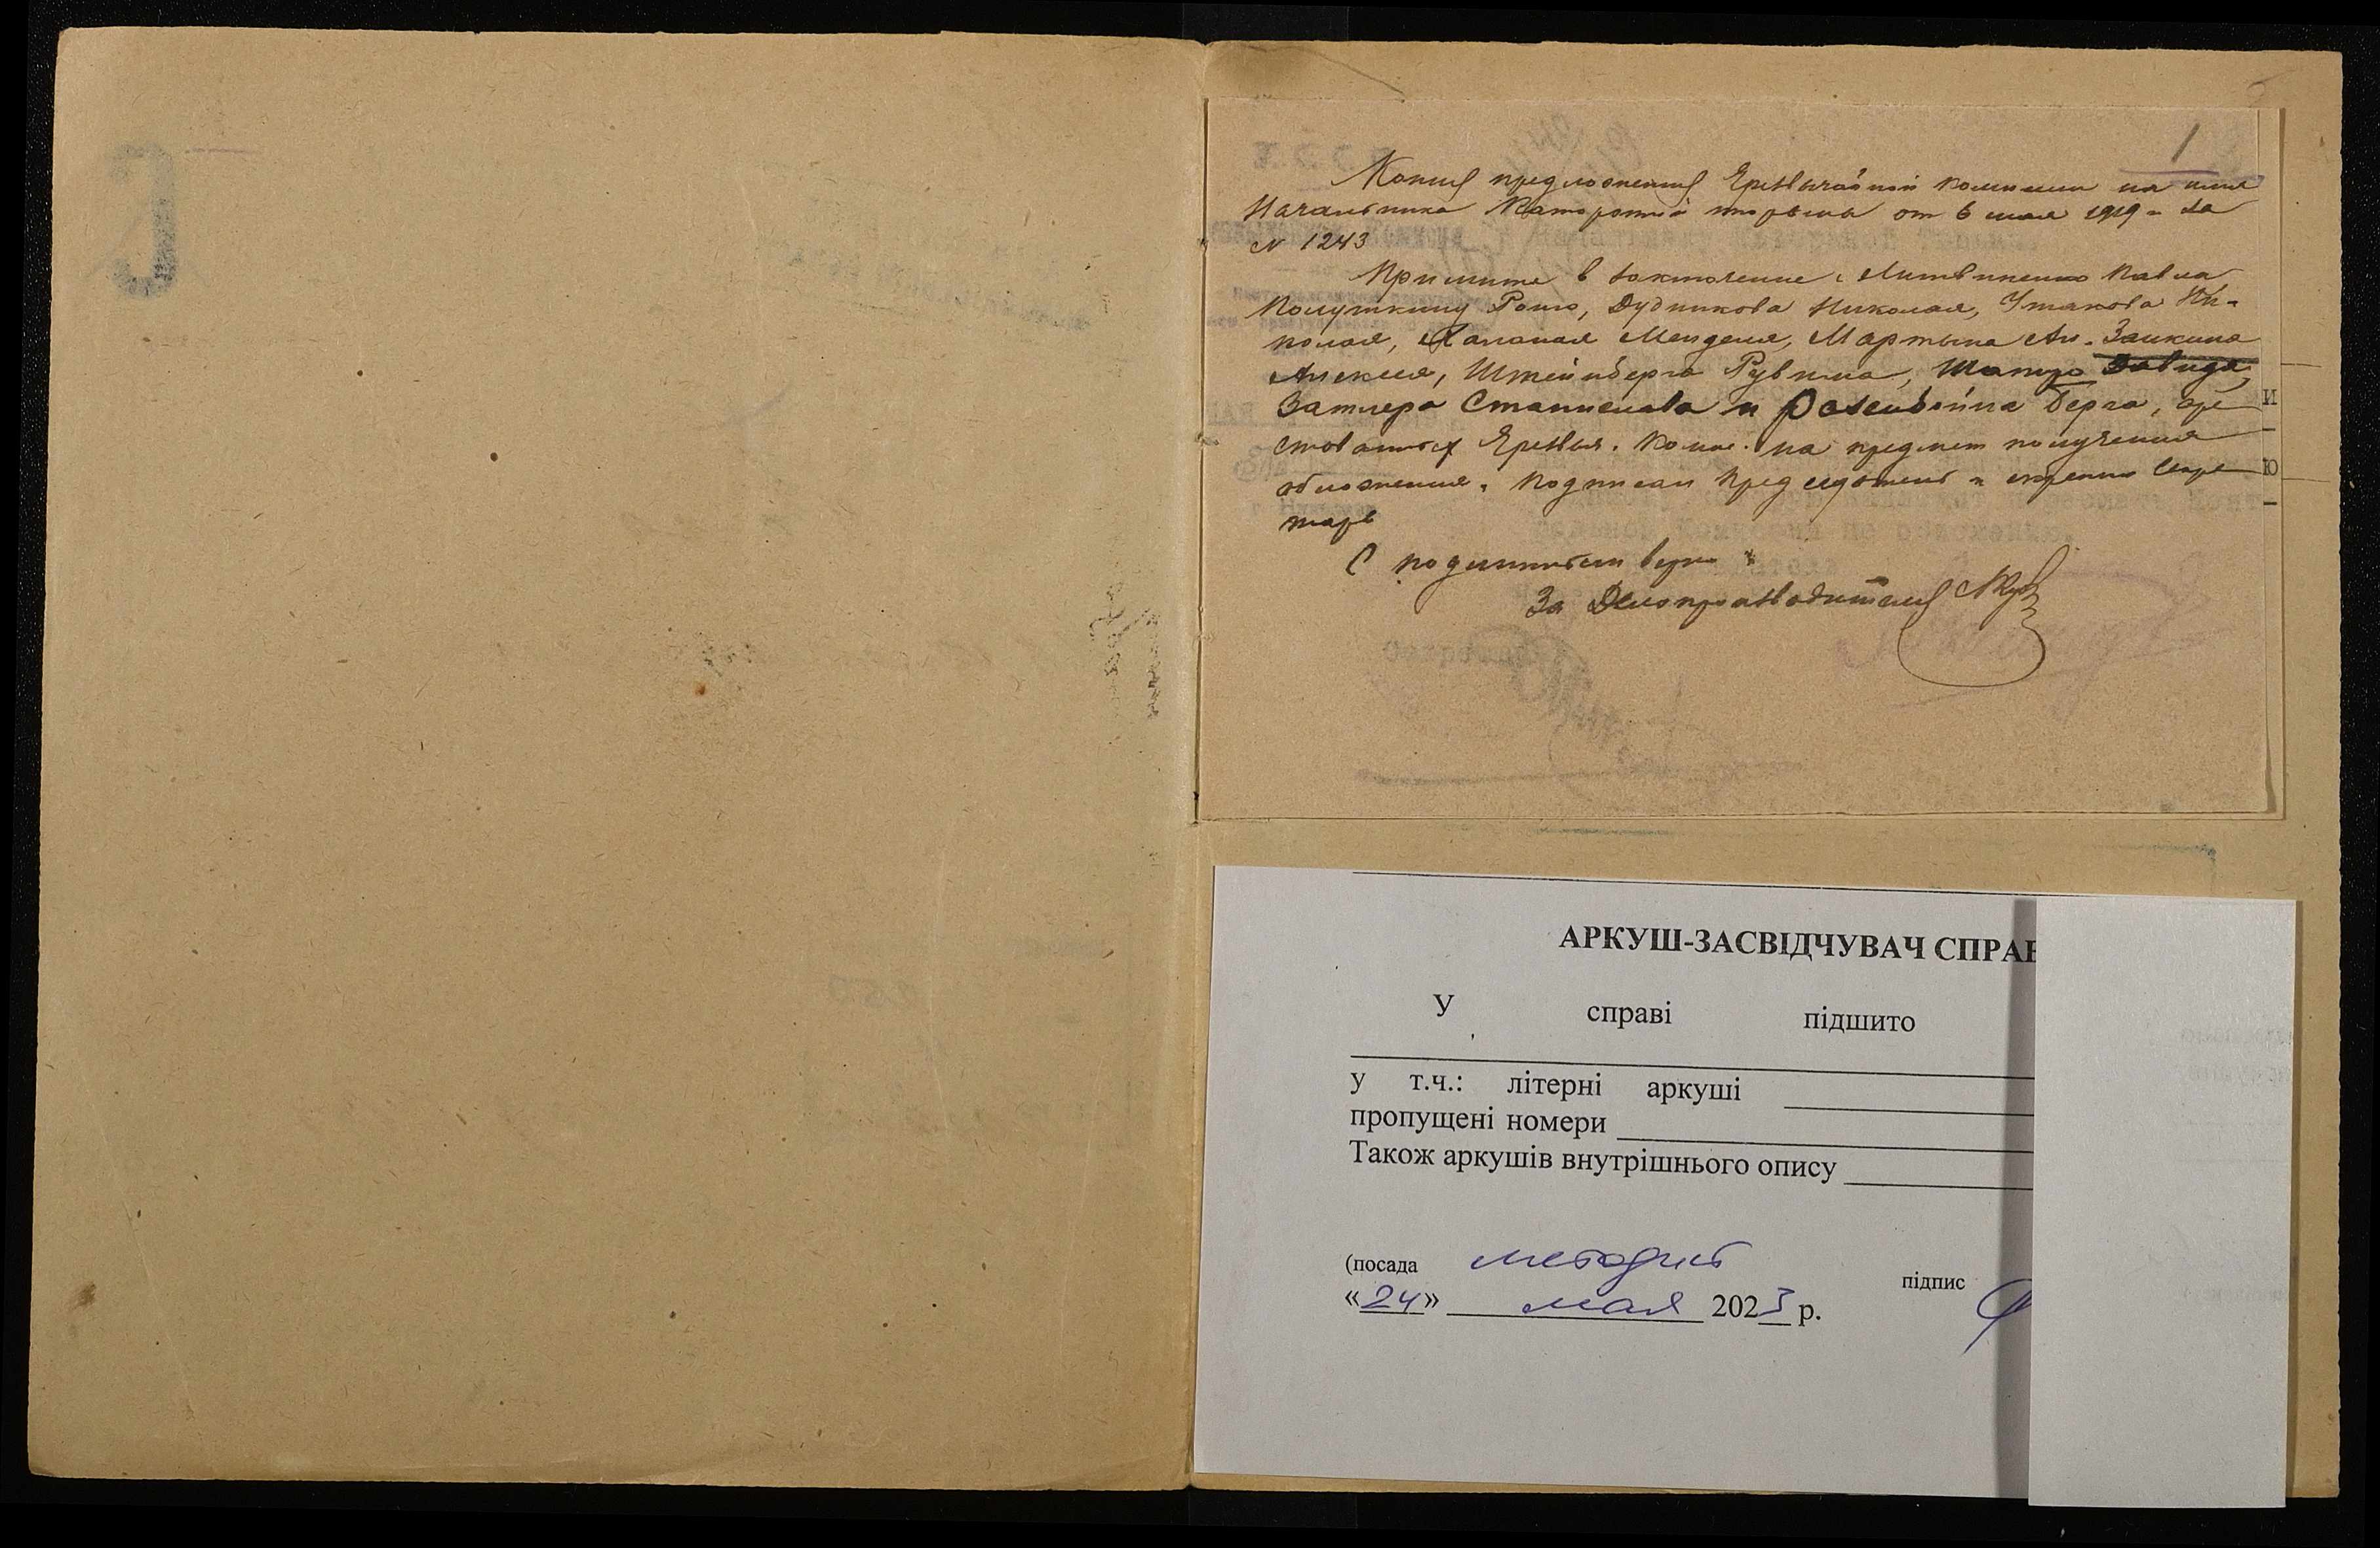 1
Копия предложения Чрезвычайной комиссии на имя
Начальника Каторжной тюрьмы от 6 мая 1919 г за
№ 1243
Примите в заключение: Литвиненко Павла
Полушкину Раию, Дудникова Николая, Ушакова Ни-
колая, Каплана Менделя, Мартына Ан. Заикина
Алексея, Штейнберга Рувима, Шапиро Давида,
Затлера Станислава и Розенбойма Берга, аре
стованных Чрезвыч. Комис. на предмет получения
обложения. Подписал Председатель и скрепил Секре
тарь
С подлинным верно
За Делопроизводителя
И
Ю
АРКУШ-ЗАСВІДЧУВАЧ СПРАВ
У справі підшито
у т.ч.: літерні аркуші
пропущені номери
Також аркушів внутрішнього опису
(посада методист підпис
«24» мая 2023 р.